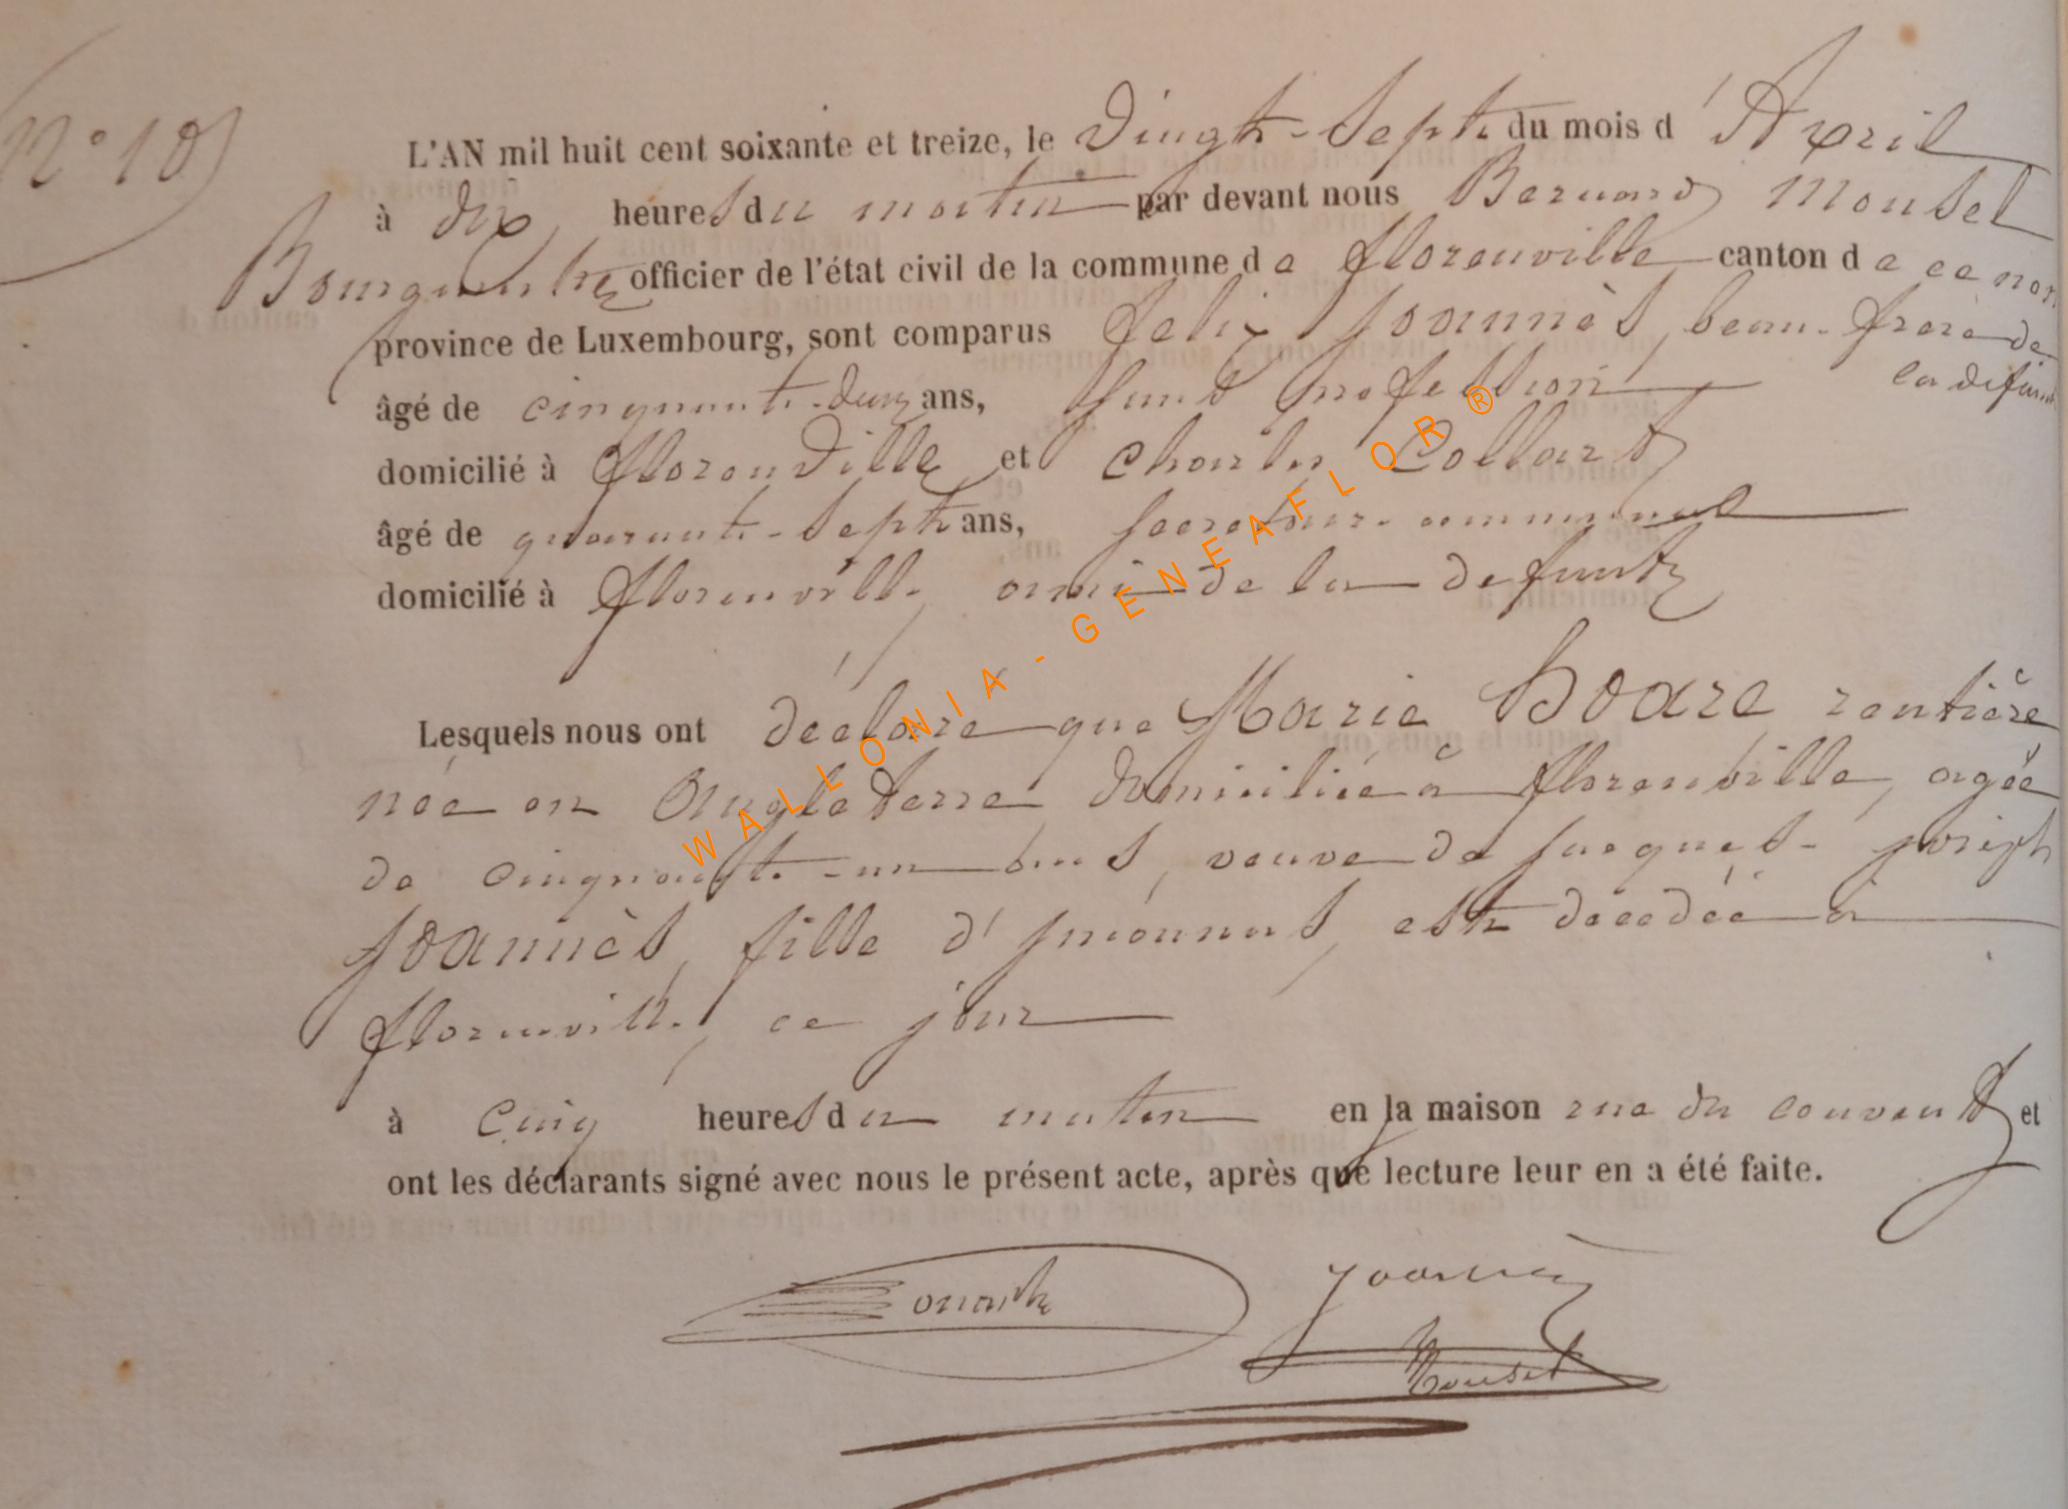 N° 10
L'AN mil huit cent soixante et treize, le Vingt-Sept du mois d'Avril
à dix heures du matin par devant nous Bernard Mousel
Bourgmestre officier de l'état civil de la commune de florenville canton de ce nom
province de Luxembourg, sont comparus felix Joannès, beau-frère de
la défunte
âgé de cinquante-deux ans, sans profession
domicilié à florenville et Charles Collard
âgé de quarante-sept ans, secrétaire communal
domicilié à florenville, ami de la défunte
Lesquels nous ont déclaré que Marie Hoare rentière
née en Angleterre domiciliée à florenville, agée
de cinquante-un ans, veuve de Jacques-Joseph
Joannès, fille d' est décédée à
florenville, ce jour
à Cinq heures du matin en la maison rue du couvent et
ont les déclarants signé avec nous le présent acte, après que lecture leur en a été faite.
Joannès
Mousel
WALLONIA - GENEAFLOR ®